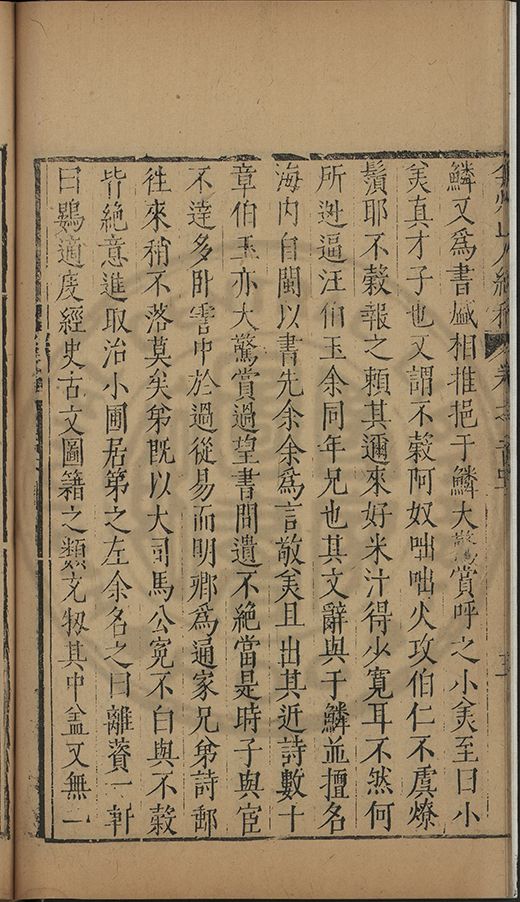 鱗又爲書盛相推挹于鱗大驚賞呼之小美至曰小
美真才子也又謂不穀阿奴咄咄火攻伯仁不虞燎
鬚耶不穀報之賴其邇來好米汁得少寬耳不然何
所逃逼汪伯玉余同年兄也其文辭與于鱗並擅名
海內自閩以書先余余爲言敬美且出其近詩數十
章伯玉亦大驚賞過望書問遺不絕當是時子與宦
不達多卧雪中於過從易而明卿爲通家兄弟詩郵
往來稍不落莫矣弟旣以大司馬公寃不白與不穀
皆絕意進取治小圃居第之左余名之曰離薋一軒
曰鷃適庋經史古文圖籍之類充牣其中盖又無一